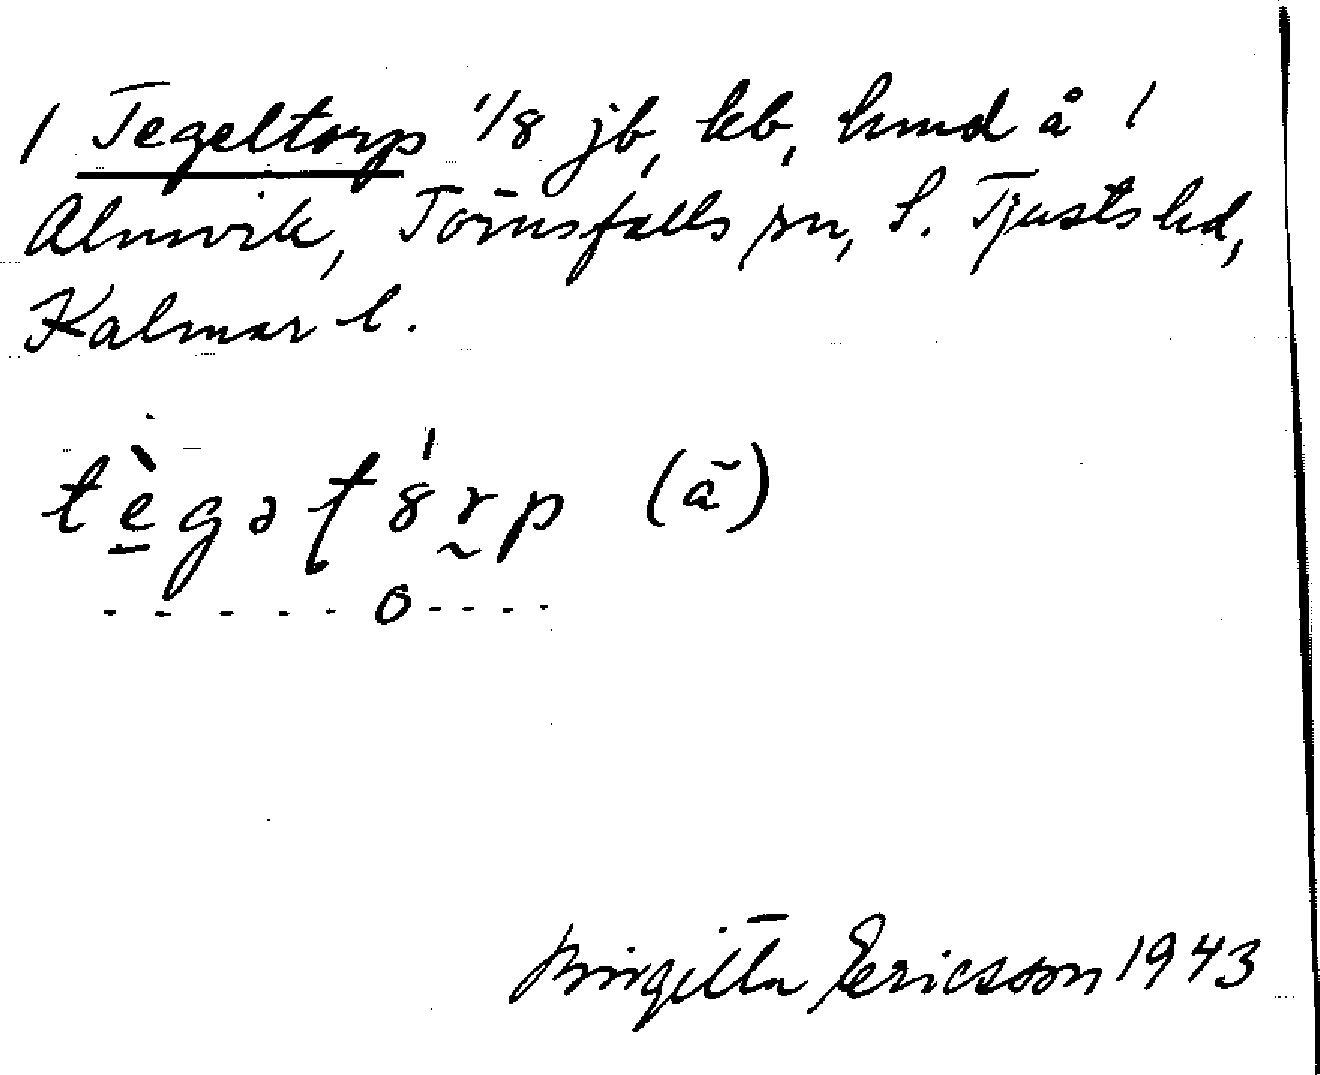 1 Tegeltorp 1/8 jb, kb, hmd å 1
Almvik, Törnsfalls sn, S. Tjusts hd,
Kalmar l.
tègəƭ8́rp (ã)
- - - - - o - - - -
Birgitta Ericsson 1943